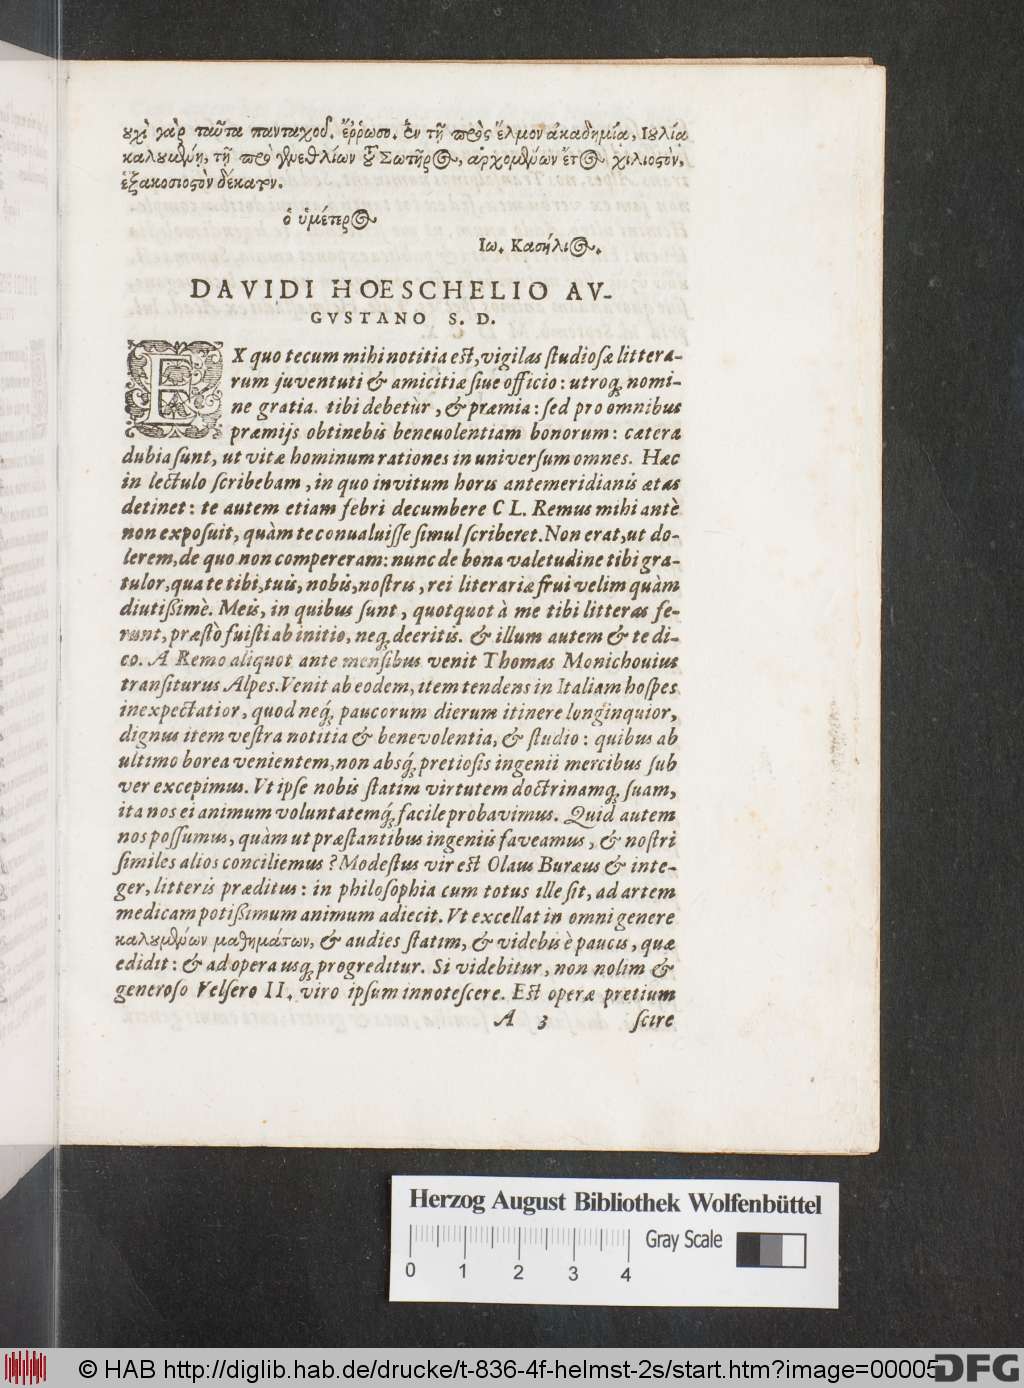 γὰρ ταῦτα πανταχοῦ. ἔῤῥωσο. ἐν τῇ πρὸς ἕλμον ἀκαδημίᾳ, Ιουλίᾳ
καλουμένῃ, τῇ πρὸ γενεθλίων τοῦ Σωτῆρος, ἀρχομένων ἔτος χιλιοστὸν,
ἑξακοσιοστὸν δέκατον.
ὁ ὑμέτερος
Ιω. Κασήλιος.
DAVIDI HOESCHELIO AV-
GVSTANO S. D.
EX quo tecum mihi notitia est, vigilas studiosæ littera-
rum juventuti & amicitiæ siue officio: utroq; nomi-
ne gratia. tibi debetùr, & præmia: sed pro omnibus
præmijs obtinebis beneuolentiam bonorum: cætera
dubia sunt, ut vitæ hominum rationes in universum omnes. Hæc
in lectulo scribebam, in quo invitum horis antemeridianis ætas
detinet: te autem etiam febri decumbere C L. Remus mihi antè
non exposuit, quàm te conualuisse simul scriberet. Non erat, ut do-
lerem, de quo non compereram: nunc de bona valetudine tibi gra-
tulor, qua te tibi, tuis, nobis, nostris, rei literariæ frui velim quàm
diutißimè. Meis, in quibus sunt, quotquot à me tibi litteras fe-
runt, præstò fuisti ab initio, neq; deeritis. & illum autem & te di-
co. A Remo aliquot ante mensibus venit Thomas Monichouius
transiturus Alpes. Venit ab eodem, item tendens in Italiam hospes
inexpectatior, quod neq; paucorum dierum itinere longinquior,
dignus item vestra notitia & benevolentia, & studio: quibus ab
ultimo borea venientem, non absq; pretiosis ingenii mercibus sub
ver excepimus. Vt ipse nobis statim virtutem doctrinamq; suam,
ita nos ei animum voluntatemq; facile probavimus. Quid autem
nos possumus, quàm ut præstantibus ingeniis faveamus, & nostri
similes alios conciliemus? Modestus vir est Olaus Buræus & inte-
ger, litteris præditus: in philosophia cum totus ille sit, ad artem
medicam potißimum animum adiecit. Vt excellat in omni genere
καλουμένων μαθημάτων, & audies statim, & videbis è paucis, quæ
edidit: & ad opera usq; progreditur. Si videbitur, non nolim &
generoso Velsero II. viro ipsum innotescere. Est operæ pretium
A 3 scire
Herzog August Bibliothek Wolfenbüttel
Gray Scale
0 1 2 3 4
© HAB http://diglib.hab.de/drucke/t-836-4f-helmst-2s/start.htm?image=00005
DFG